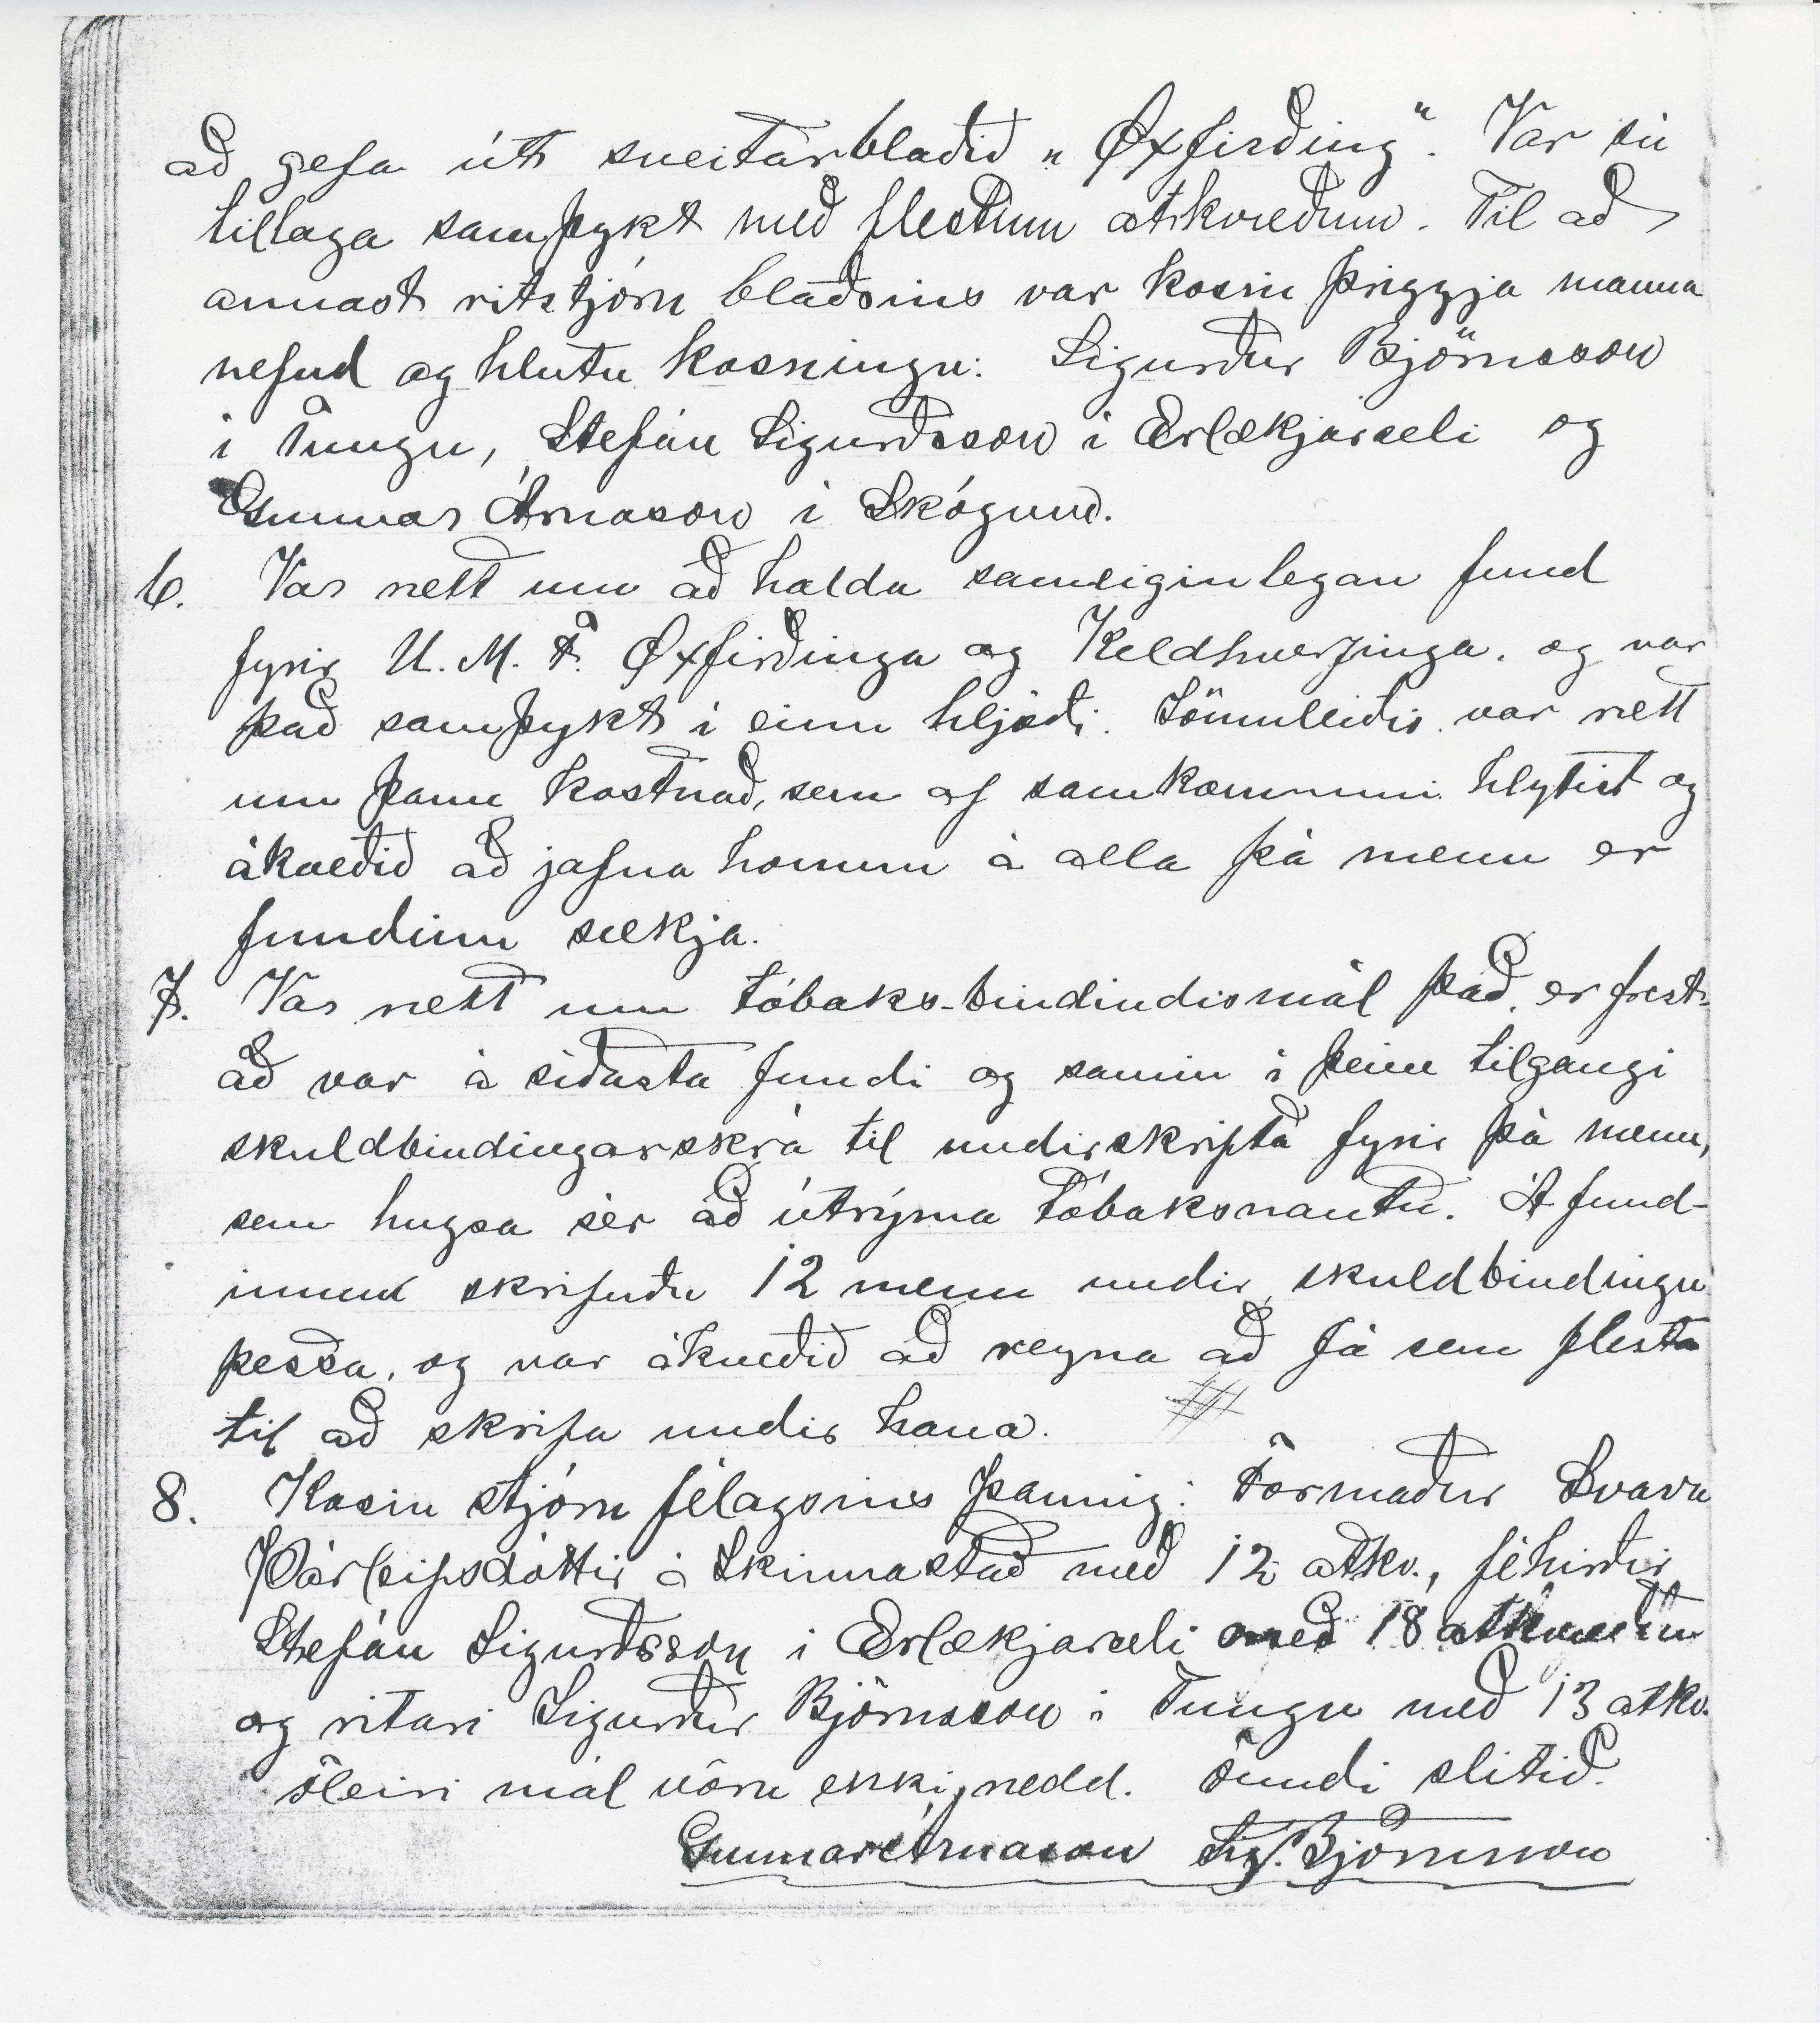 að gefa út sveitarblaðið „Øxfirðing“. Var sú
tillaga samþykt með flestum atkvæðum. Til að
annast ritstjórn blaðsins var kosin þriggja manna
nefnd og hlutu kosningu: Sigurður Björnsson
í Tungu, Stefán Sigurðsson í Ærlækjarseli og
Gunnar Árnason í Skógum.
6. Var rætt um að halda sameiginlegan fund
fyrir U. M. F. Øxfirðinga og Keldhverfinga. og var
það samþykt í einu hljóði. Sömuleiðis var rætt
um þann kostnað, sem af samkomunni hlytist og
ákveðið að jafna honum á alla þá menn er
fundinn sækja.
7. Var rætt um tóbaks-bindindismál það er frest-
að var á síðasta fundi og samin í þeim tilgangi
skuldbindingarskrá til undirskripta fyrir þá menn,
sem hugsa sér að útrýma tóbaksnautn. Á fund-
inum skrifuðu 12 menn undir skuldbindingu
þessa, og var ákveðið að reyna að fá sem flesta
til að skrifa undir hana.
8. Kosin stjórn félagsins þannig: Formaður Svava
Þorleifsdóttir á Skinnastað með 12 atkv., féhirðir
Stefán Sigurðsson í Ærlækjarseli með 18 atkvæðum
og ritari Sigurður Björnsson í Tungu með 13 atkv.
Fleiri mál vóru ekki rædd. Fundi slitið.
Gunnar Árnason Sig. Björnsson